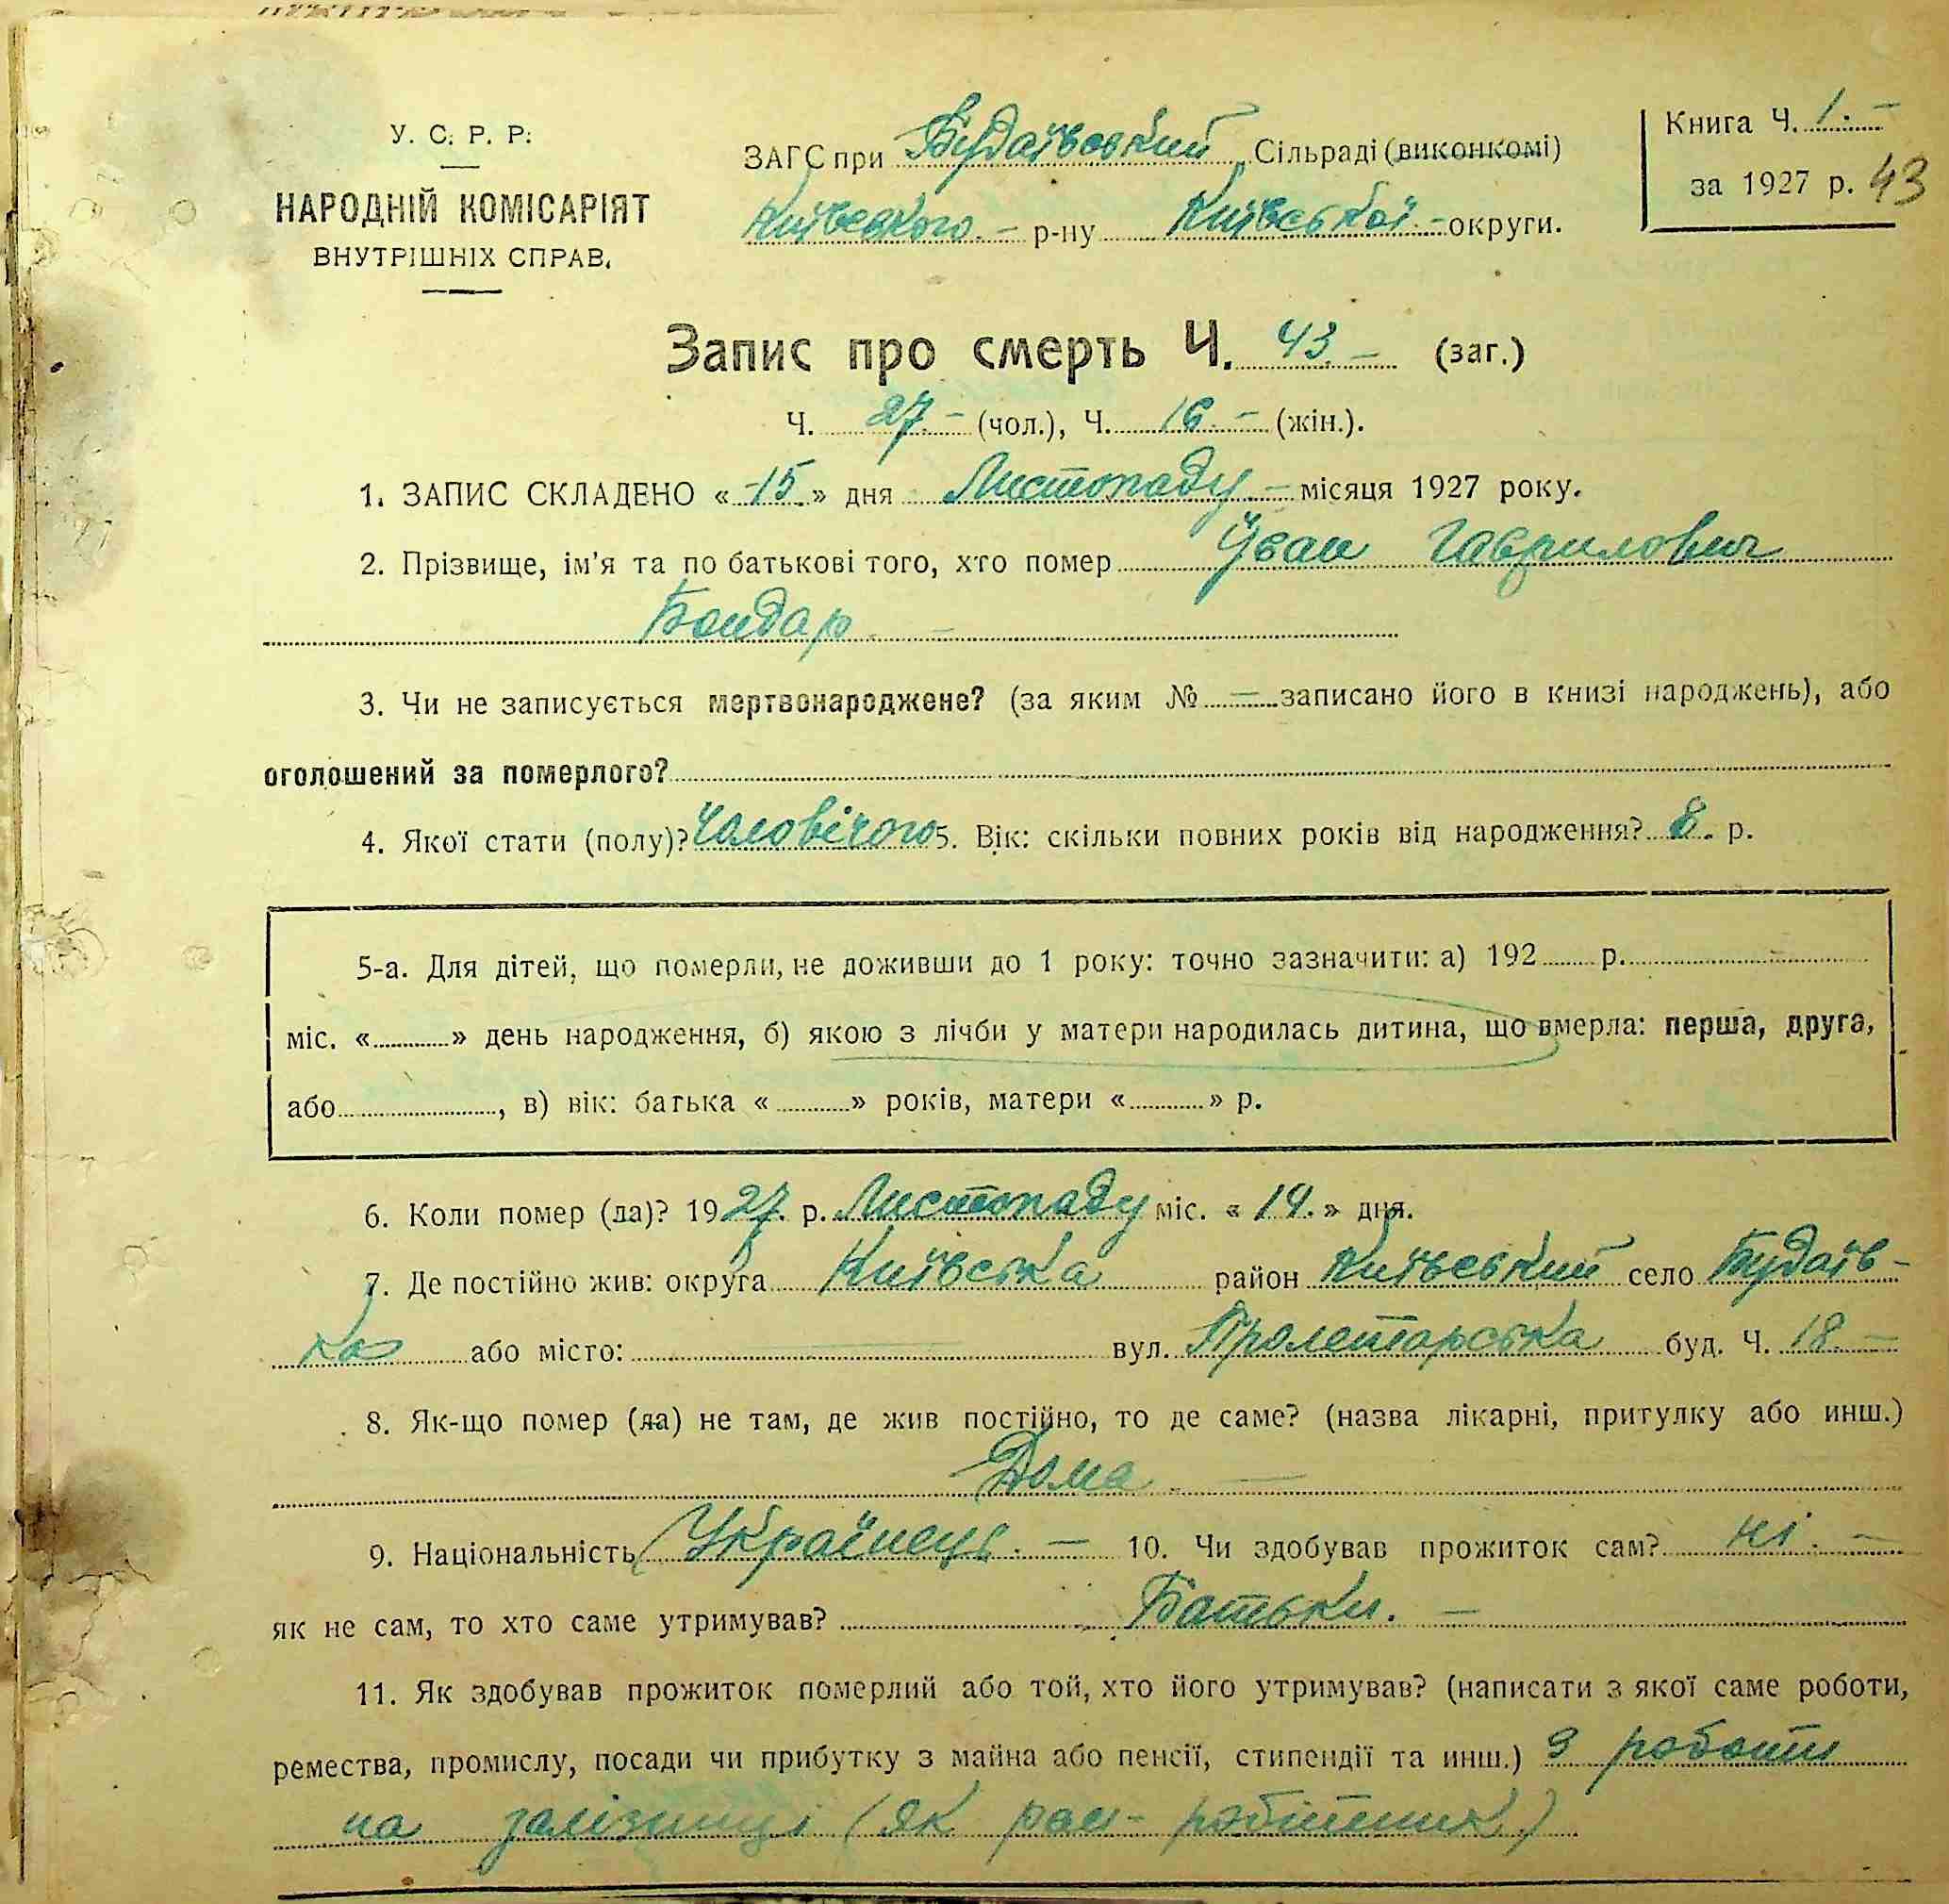 У. С. Р. Р.
НАРОДНІЙ КОМІСАРІЯТ
ВНУТРІШНІХ СПРАВ.
ЗАГС при Будаївський Сільраді (виконкомі)
Київського р-ну Київської округи.
Книга Ч. 1.
за 1927 р. 43
Запис про смерть Ч. 43 (заг.)
Ч. 27 (чол.), Ч. 16 (жін.).
1. ЗАПИС СКЛАДЕНО «15» дня Листопаду місяця 1927 року.
2. Прізвище, ім'я та по батькові того, хто помер Іван Гаврилович
Бондар
3. Чи не записується мертвонароджене? (за яким № записано його в книзі народжень), або
оголошений за померлого?
4. Якої стати (полу)? Чоловічого 5. Вік: скільки повних років від народження? 8. р.
5-а. Для дітей, що померли, не доживши до 1 року: точно зазначити: а) 192 р.
міс. « » день народження, б) якою з лічби у матери народилась дитина, що вмерла: перша, друга,
або , в) вік: батька « » років, матери « » р.
6. Коли помер (ла)? 1927. р. Листопаду міс. «14.» дня.
7. Де постійно жив: округа Київська район Київський село Будаїв-
ка або місто: вул. Пролетарська буд. Ч. 18.
8. Як-що помер (ла) не там, де жив постійно, то де саме? (назва лікарні, притулку або инш.)
Дома
9. Національність Українець. 10. Чи здобував прожиток сам? ні.
як не сам, то хто саме утримував? Батьки.
11. Як здобував прожиток померлий або той, хто його утримував? (написати з якої саме роботи,
ремества, промислу, посади чи прибутку з майна або пенсії, стипендії та инш.) З роботи
на залізниці (як робітник)